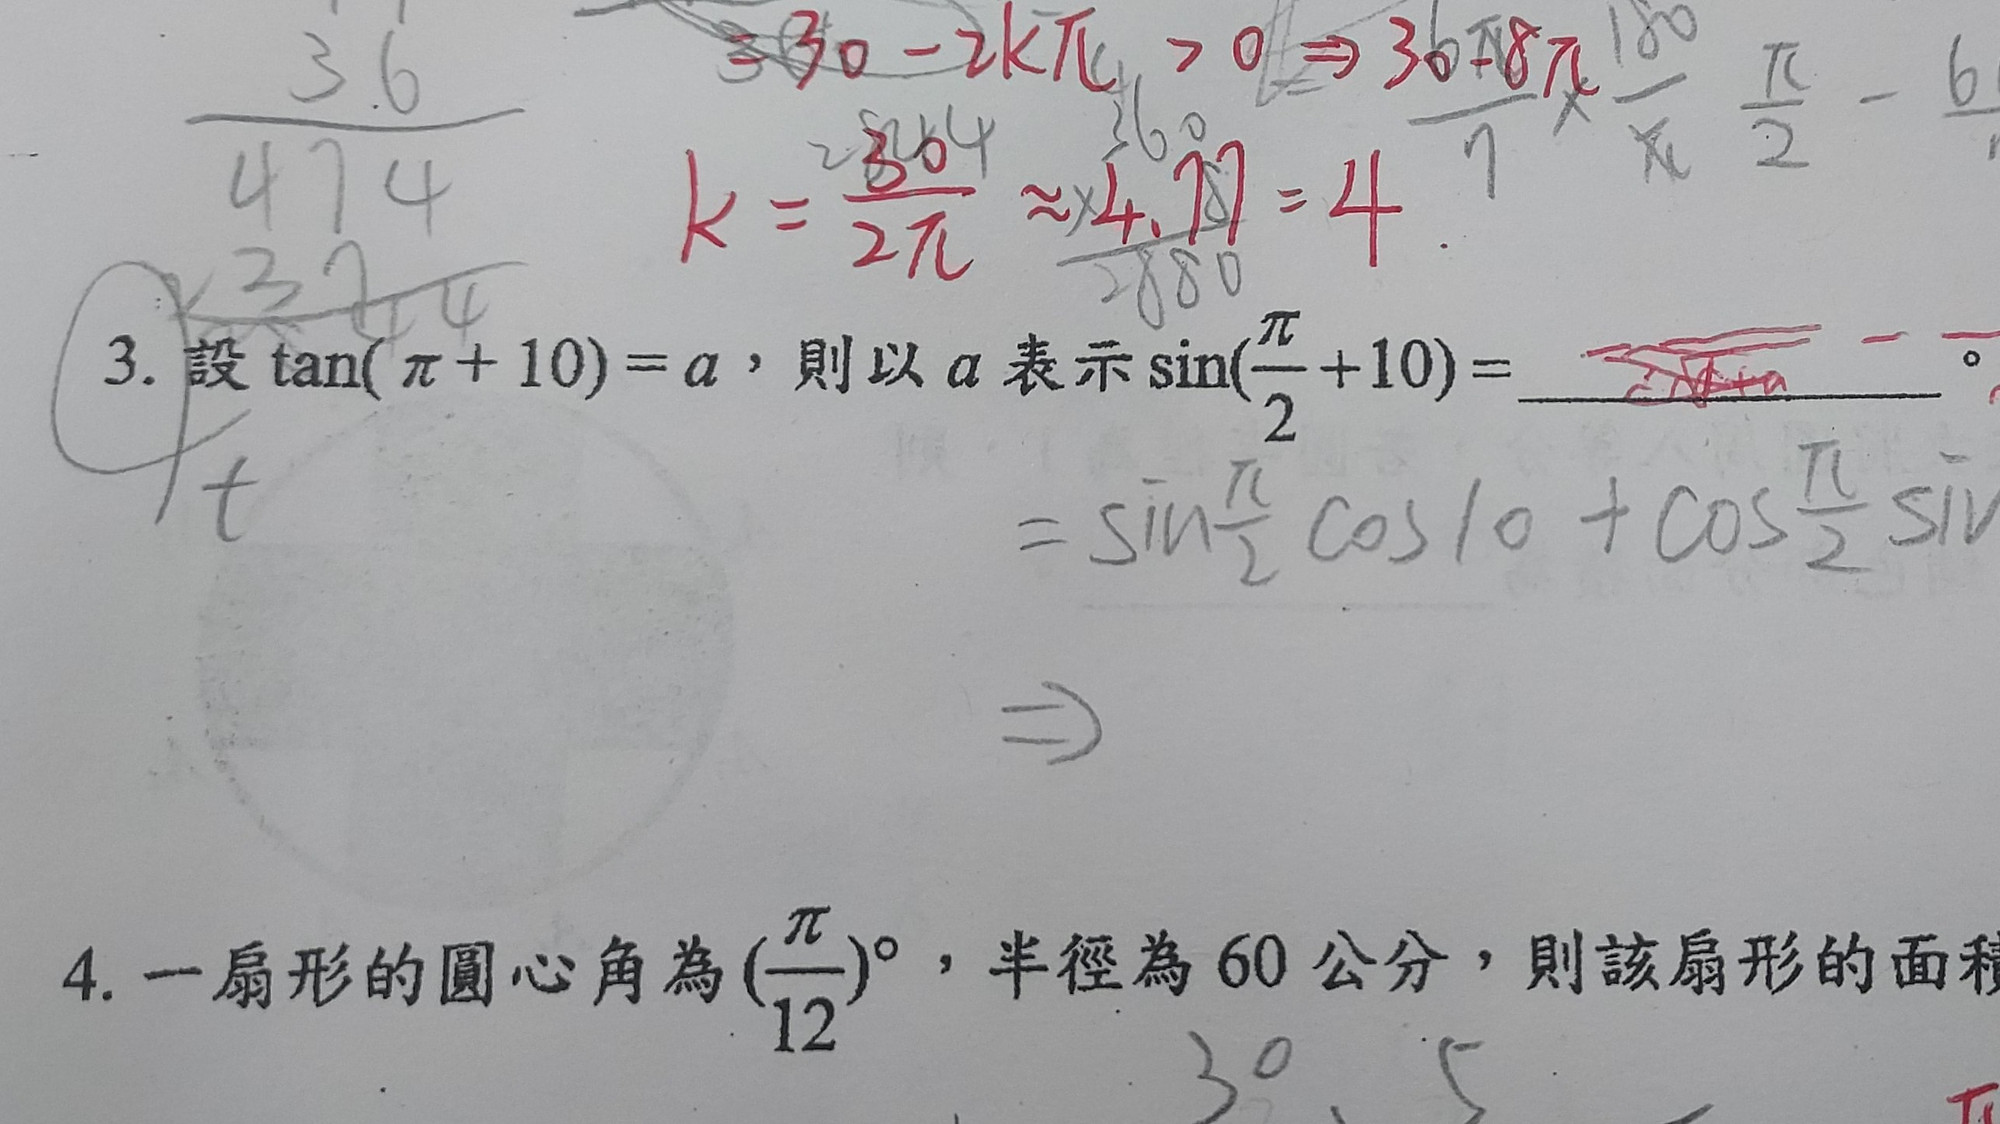 36
= 30 - 2kπ > 0 ⇒ 36-8π
180
π/2 -
474
k = 30/2π ≈ 4.77 = 4
360
2880
37
3. 設 tan(π+10)=a，則以 a 表示 sin(π/2+10)=＿＿＿＿。
t
= sin π/2 cos10 + cos π/2 sin
⇒
4. 一扇形的圓心角為(π/12)°，半徑為 60 公分，則該扇形的面積
30 5